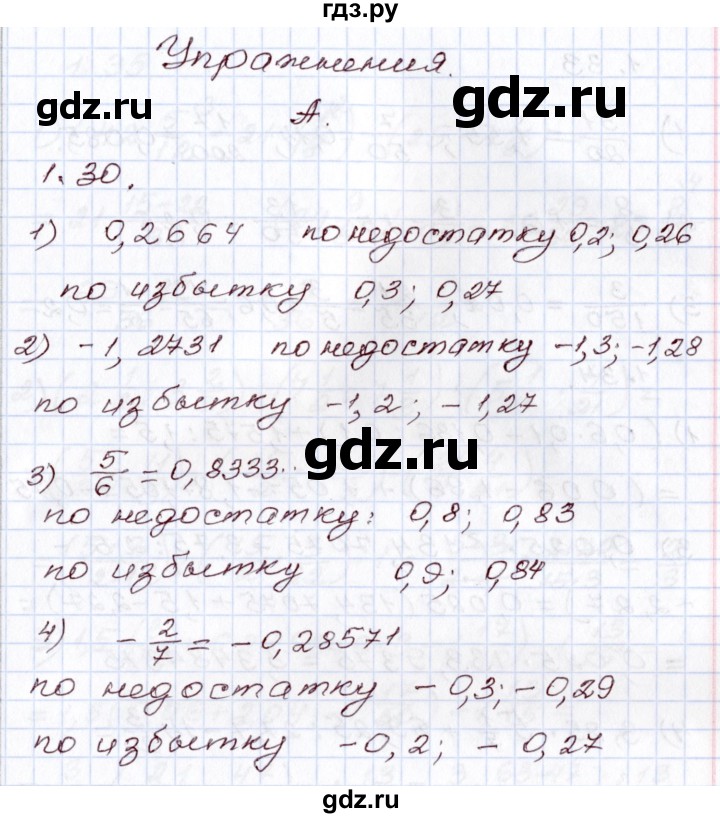 гдз.ру
Упражнения.
gdz.ru
gdz.ru
А.
1.30.
1) 0,2664 по недостатку 0,2; 0,26
по избытку 0,3; 0,27
2) -1,2731 по недостатку -1,3; -1,28
по избытку -1,2; -1,27
gdz.ru
3) 5/6 = 0,8333...
по недостатку: 0,8; 0,83
по избытку 0,9; 0,84
4) - 2/7 = -0,28571
по недостатку -0,3; -0,29
по избытку -0,2; -0,27
gdz.ru
gdz.ru